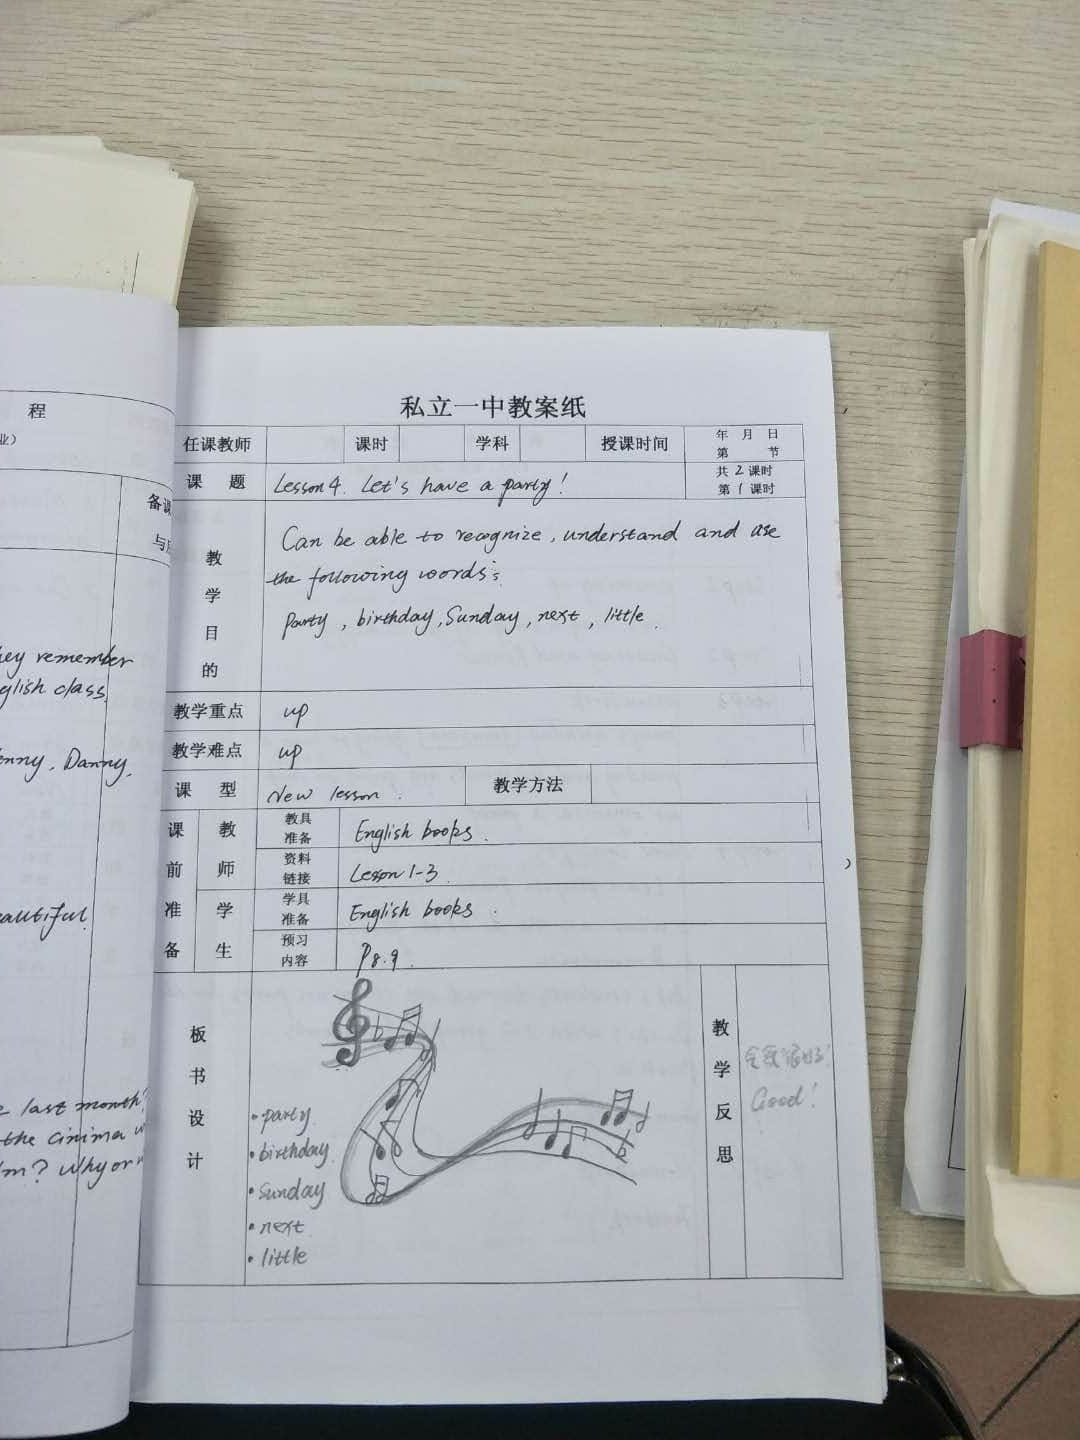 程
业）
备课
与
ey remember
glish class.
enny, Danny,
eautiful.
last month?
the cinima
m? Why or
私立一中教案纸
任课教师 课时 学科 授课时间 年 月 日
第 节
课 题 Lesson 4. Let's have a party! 共 2 课时
第 1 课时
教学目的
Can be able to recognize, understand and use
the following words:
Party, birthday, Sunday, next, little.
教学重点 up
教学难点 up
课 型 New lesson. 教学方法
课前准备
教师
教具准备 English books.
资料链接 Lesson 1-3.
学生
学具准备 English books.
预习内容 P8.9.
板书设计
• party
• birthday
• Sunday
• next
• little
教学反思
Good!